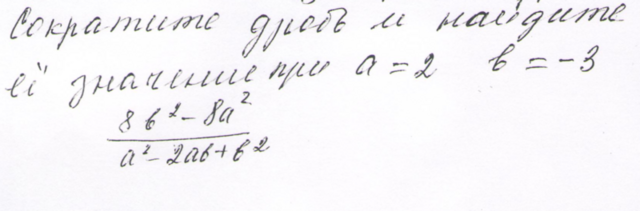 Сократите дробь и найдите
её значение при a = 2 b = -3
8b² - 8a²
a² - 2ab + b²